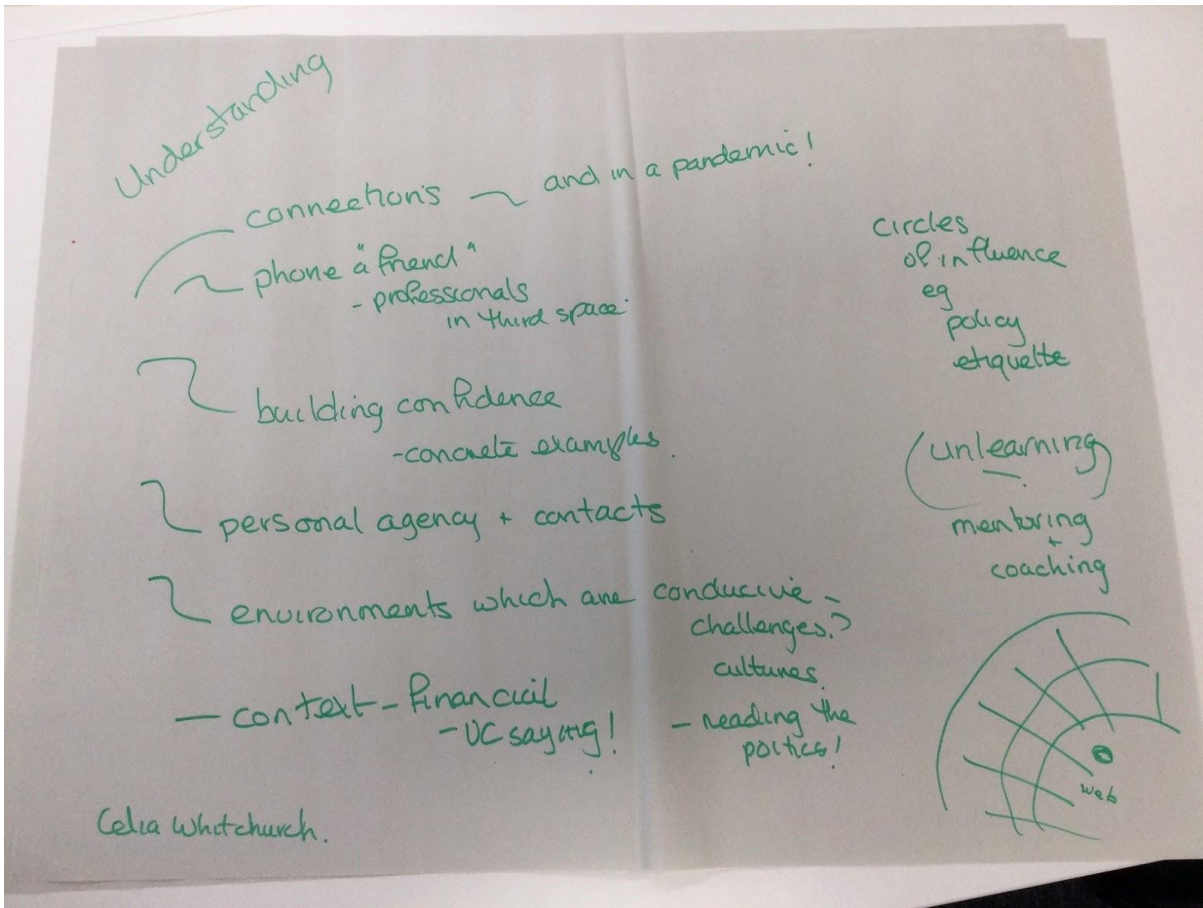 Understanding
connections ~ and in a pandemic!
phone "a friend"
- professionals
in third space
building confidence
- concrete examples.
personal agency + contacts
environments which are conducive -
challenges?
cultures.
- context - financial
- VC saying!
- reading the
politics!
Celia Whitchurch.
circles
of influence
eg
policy
etiquette
(unlearning)
mentoring
+
coaching
web